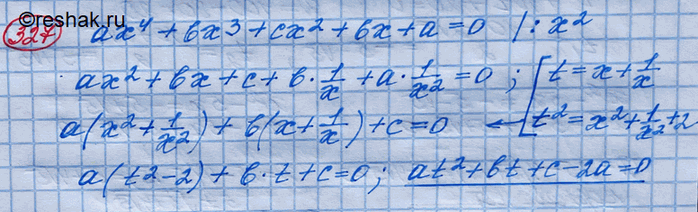 ©reshak.ru
327 ax⁴ + bx³ + cx² + bx + a = 0 |: x²
ax² + bx + c + b · 1/x + a · 1/x² = 0 ; [ t = x + 1/x
a(x² + 1/x²) + b(x + 1/x) + c = 0 ← [ t² = x² + 1/x² + 2
a(t² - 2) + b · t + c = 0 ; at² + bt + c - 2a = 0